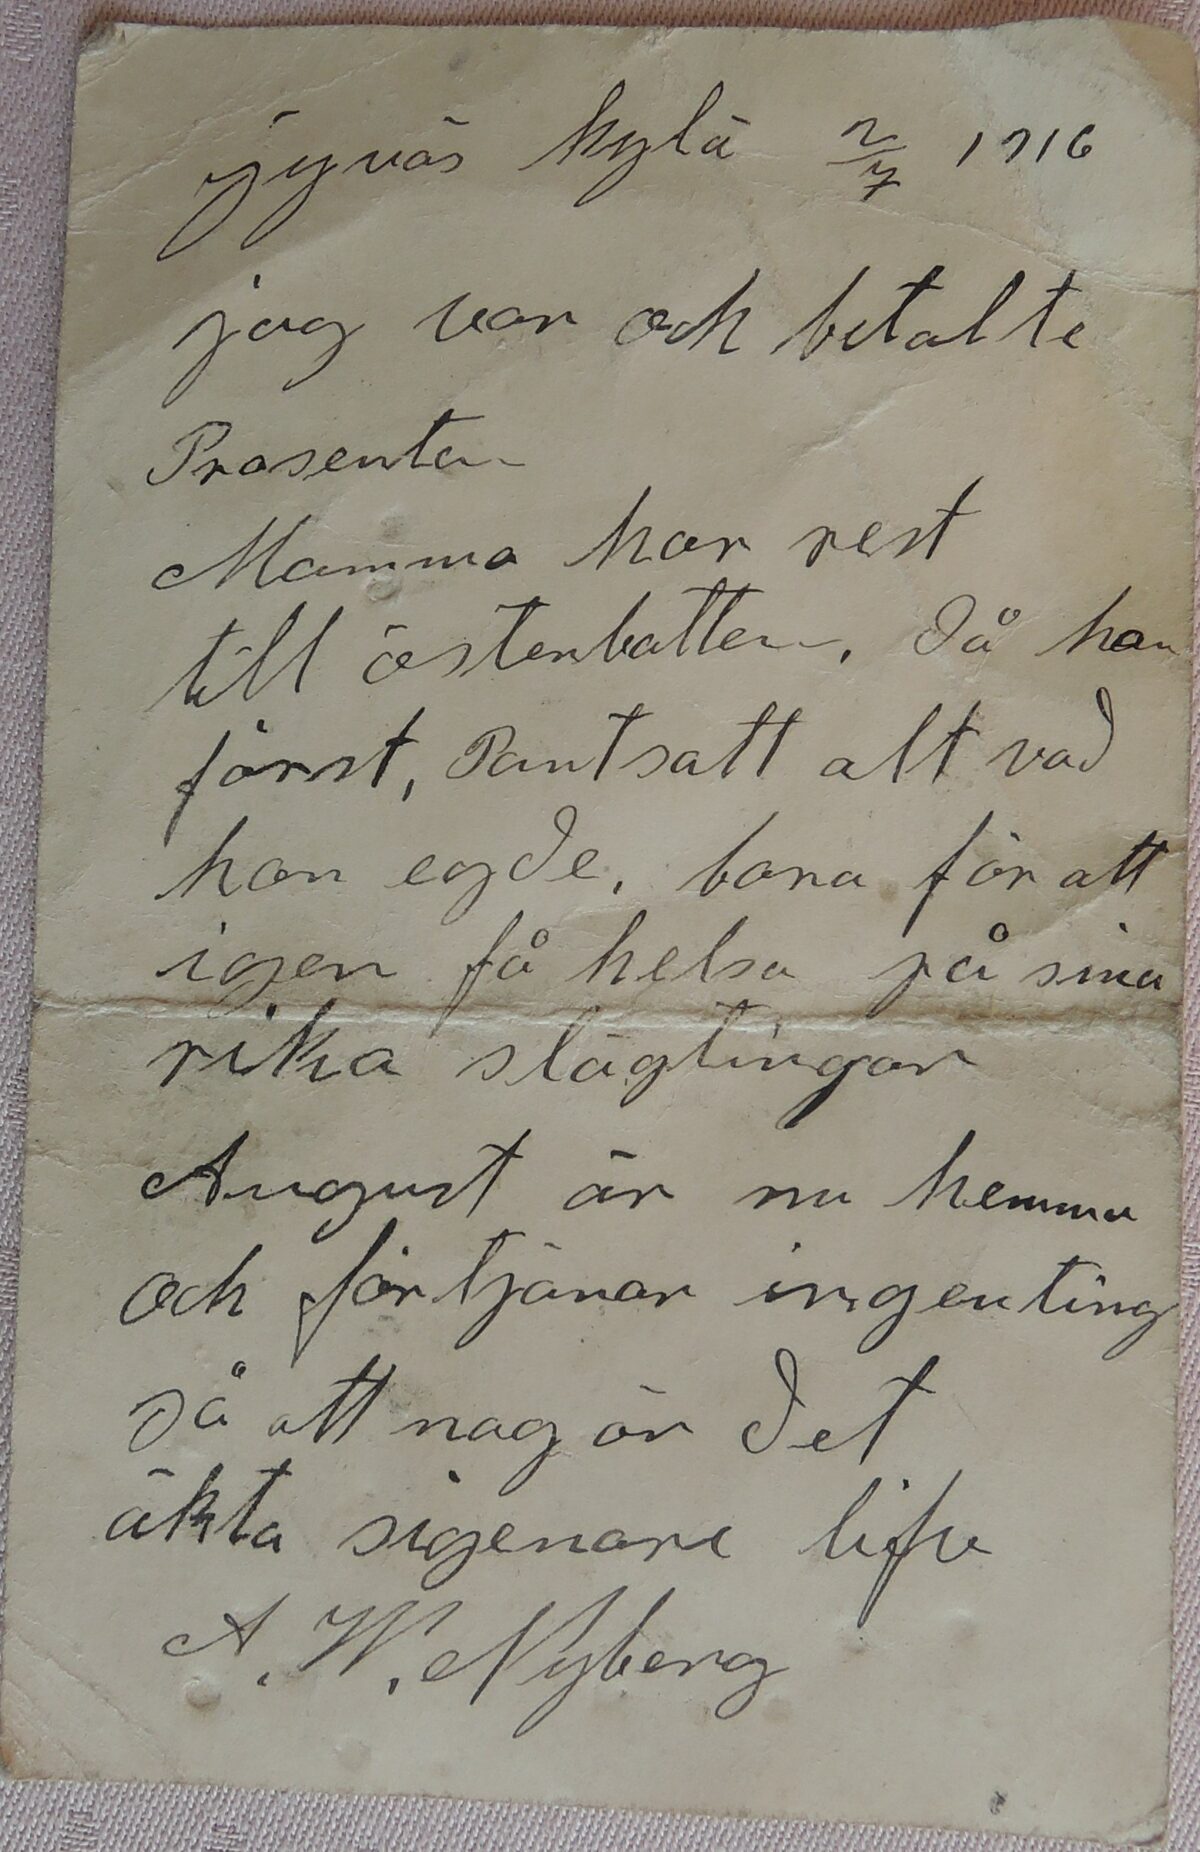 jyväs kylä 2/7 1916
jag var och betalte
Prosenten
Mamma har rest
till österbotten. då han
först, Pantsatt alt vad
han egde. bara för att
igen få helsa på sina
rika slägtingar
August är nu hemma
och förtjänar ingenting
så att nog är det
äkta sigenare life
A. W. Nyberg